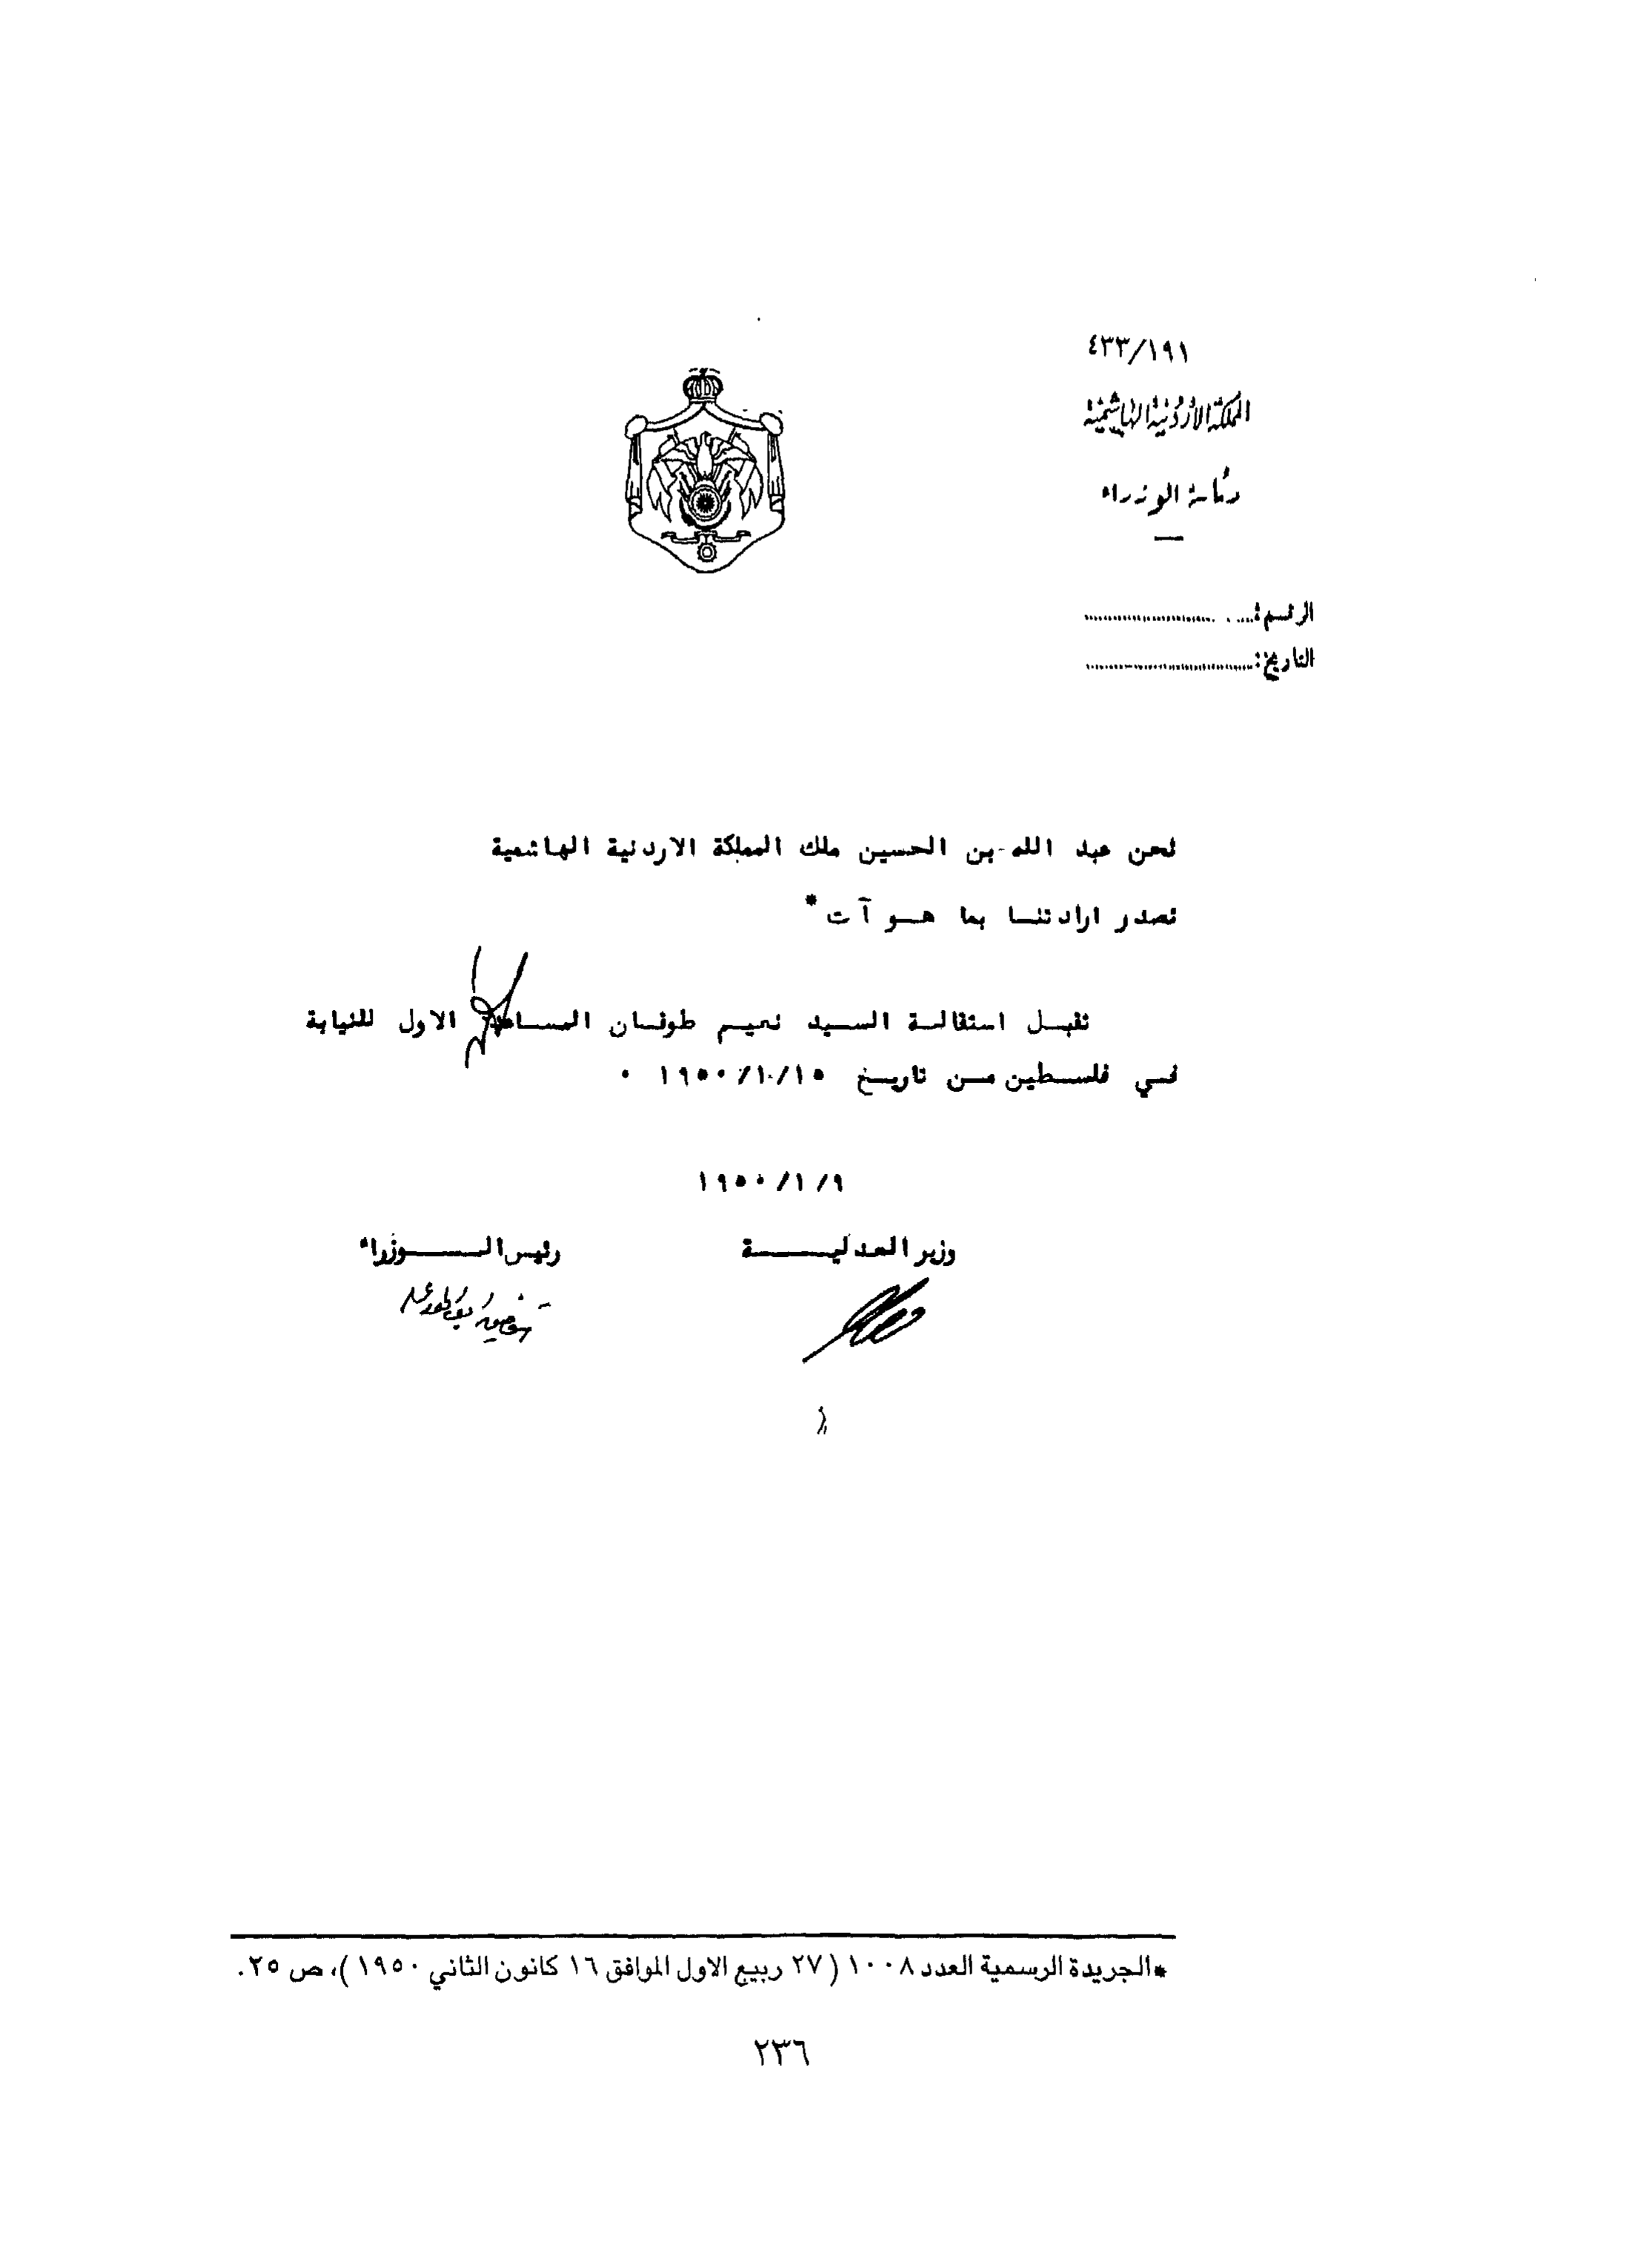 ٤٣٣/١٩١
المملكة الأردنية الهاشمية
رئاسة الوزراء
الرقم:
التاريخ:
نحن عبد الله بن الحسين ملك المملكة الاردنية الهاشمية
نصدر ارادتنا بما هو آت*
نقبل استقالة السيد نعيم طوقان المساعد الاول للنيابة
في فلسطين من تاريخ ١٩٥٠/١٠/١٥ ٠
١٩٥٠/١/٩
وزير العدلية رئيس الوزراء
*الجريدة الرسمية العدد ١٠٠٨ (٢٧ ربيع الاول الموافق ١٦ كانون الثاني ١٩٥٠)، ص ٢٥.
٢٣٦